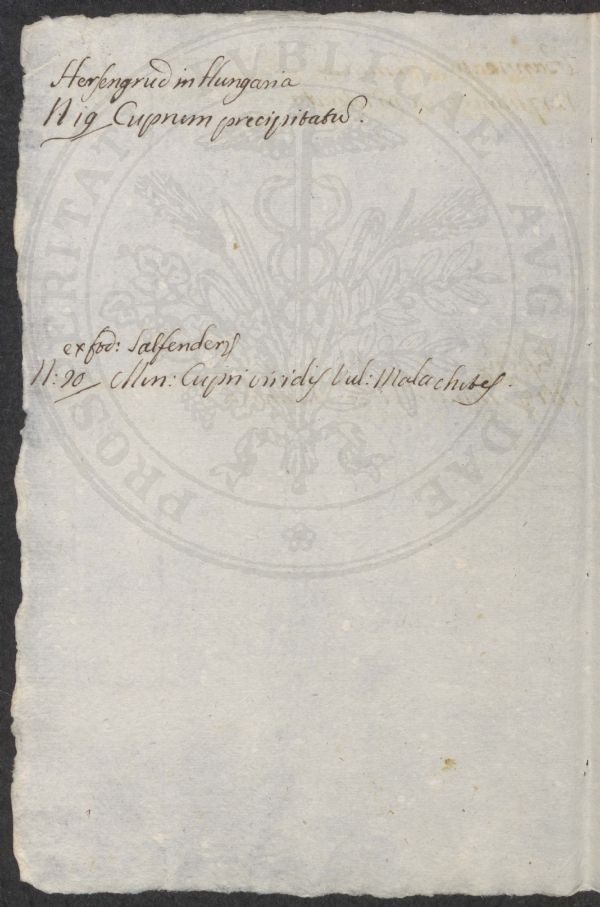 Hersengrud in Hungaria
N 19 Cuprum precipitatū.
ex fod: Salfendens
N: 20 Min: Cupri viridis Vul: Malachites.
PROSPERITATI PVBLICAE AVGENDAE